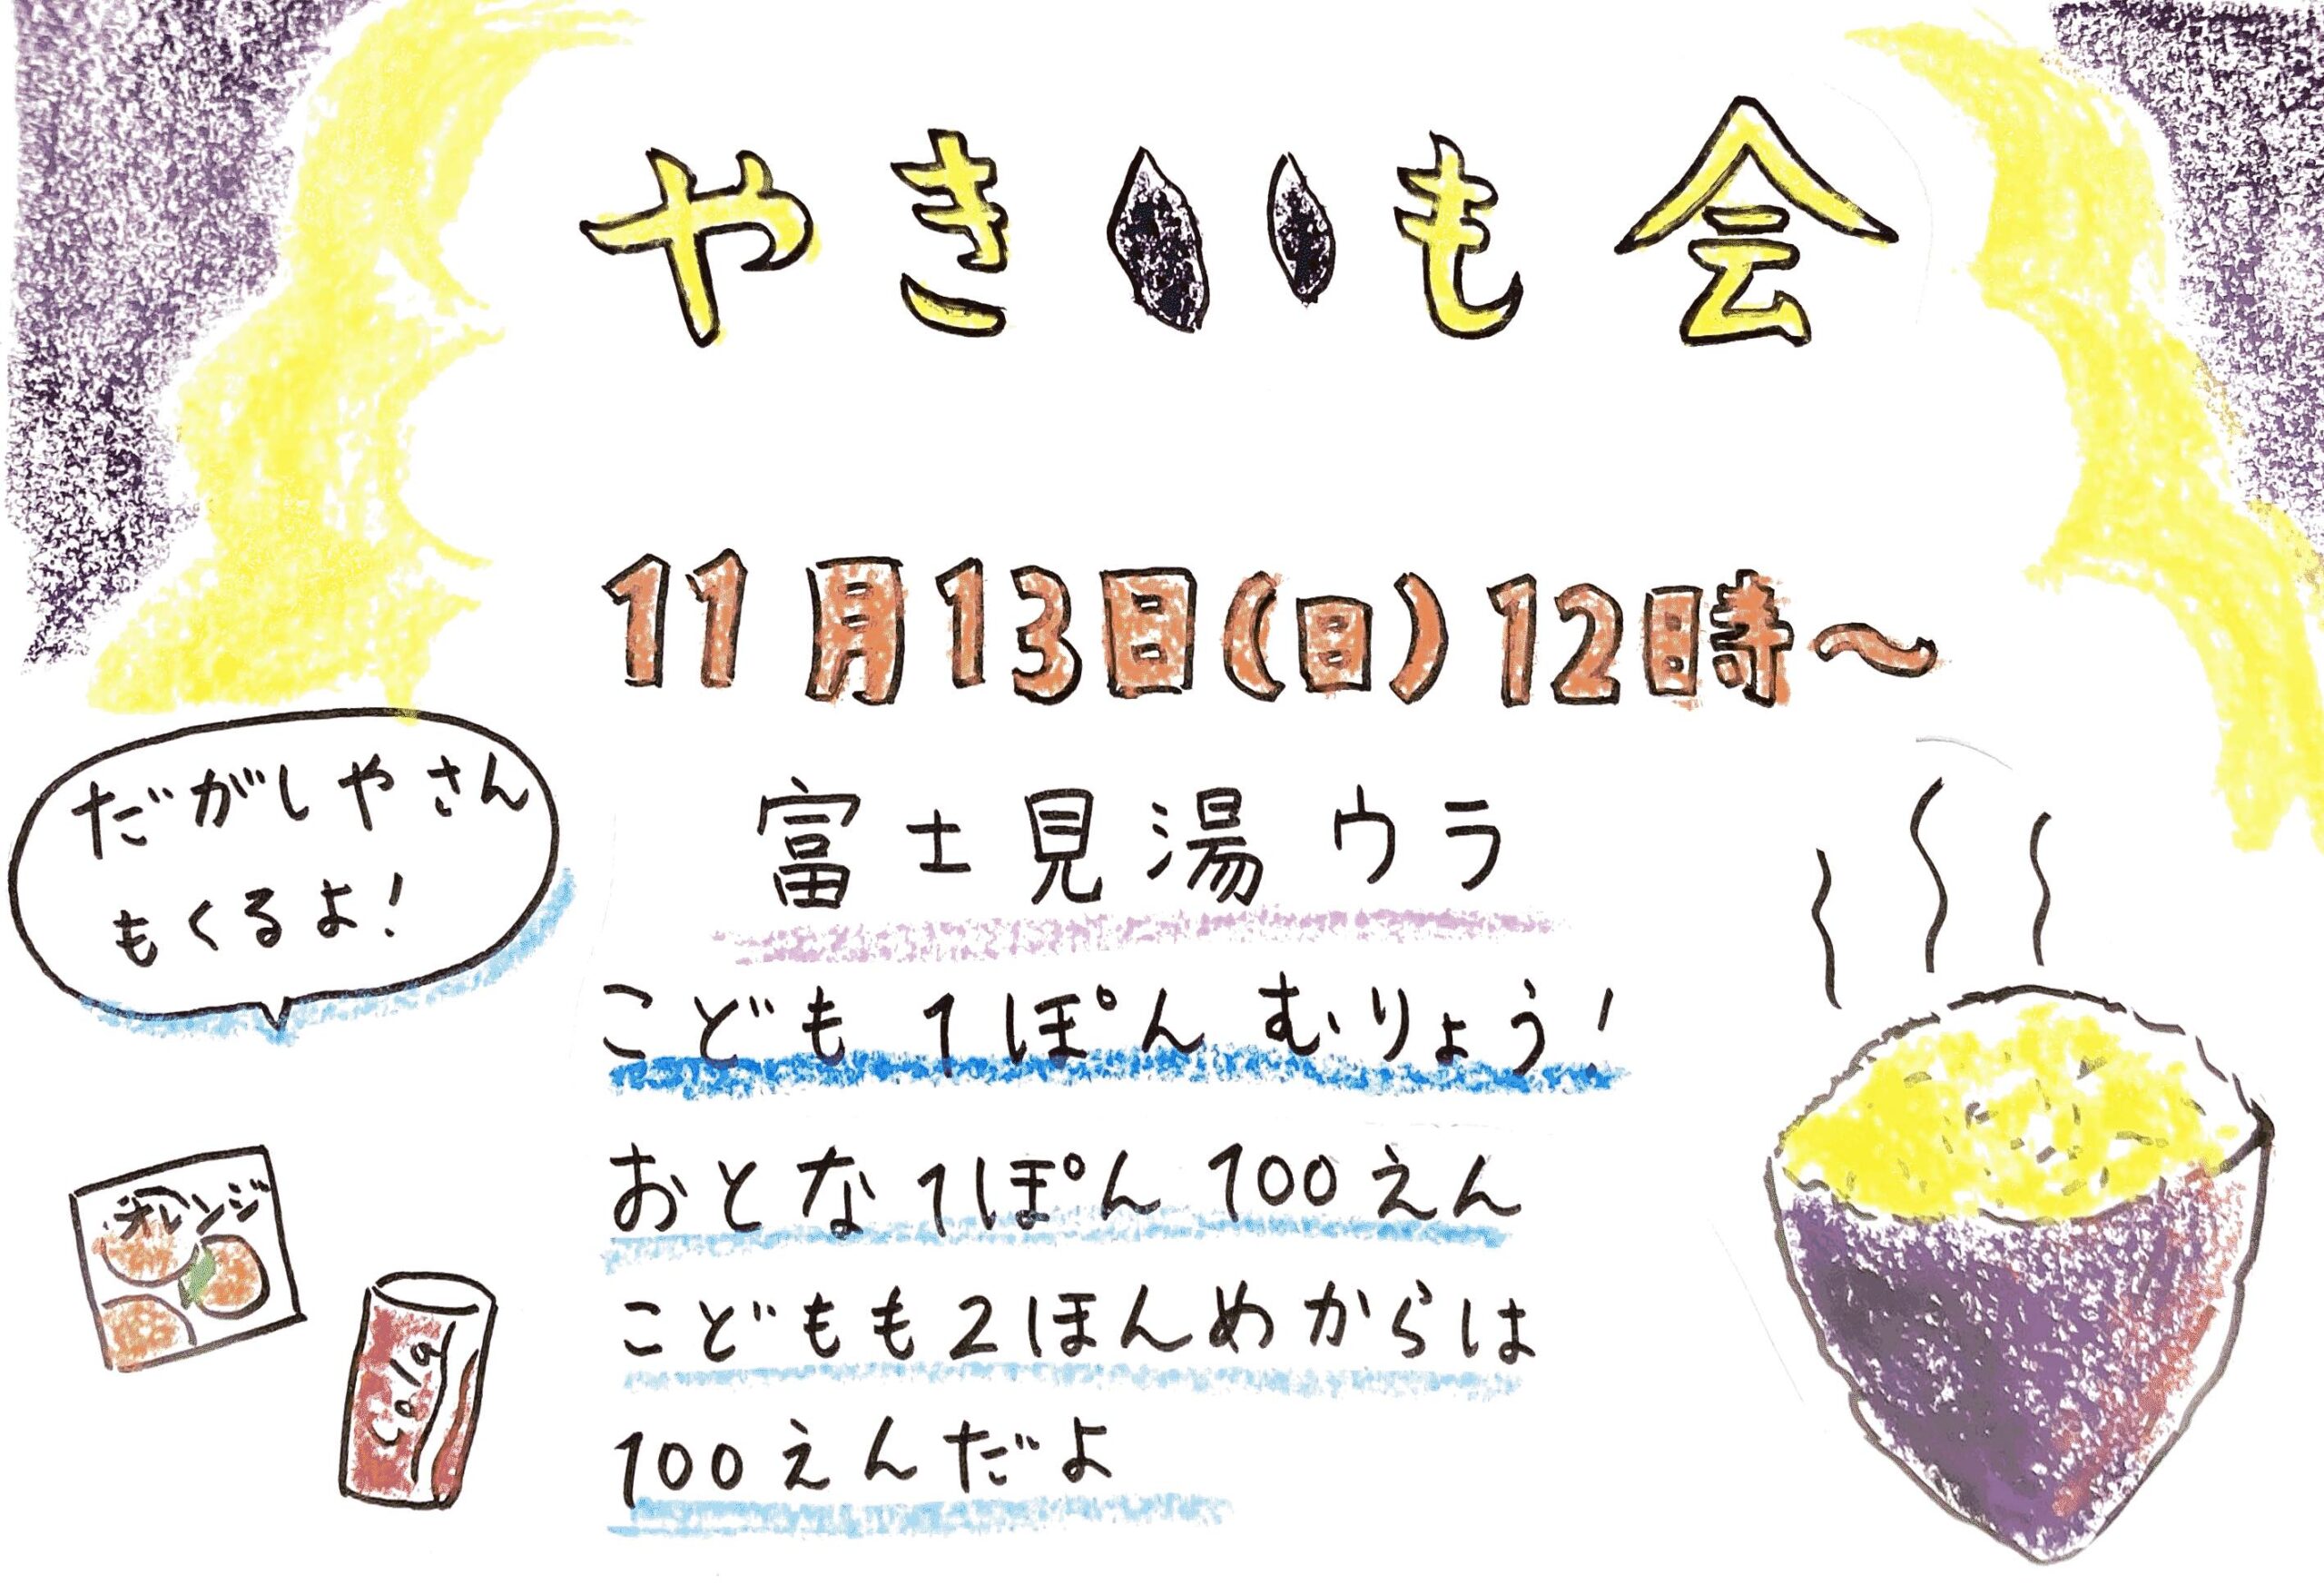 やきいも会
11月13日(日)12時〜
だがしやさん
もくるよ!
富士見湯ウラ
こども1ぽんむりょう!
おとな1ぽん100えん
こどもも2ほんめからは
100えんだよ
オレンジ
Cola